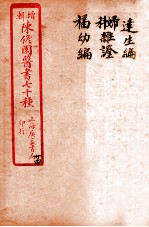 達生編
婦科雜證
福幼編
增輯
陳修園醫書七十種
上海廣益書局
印行